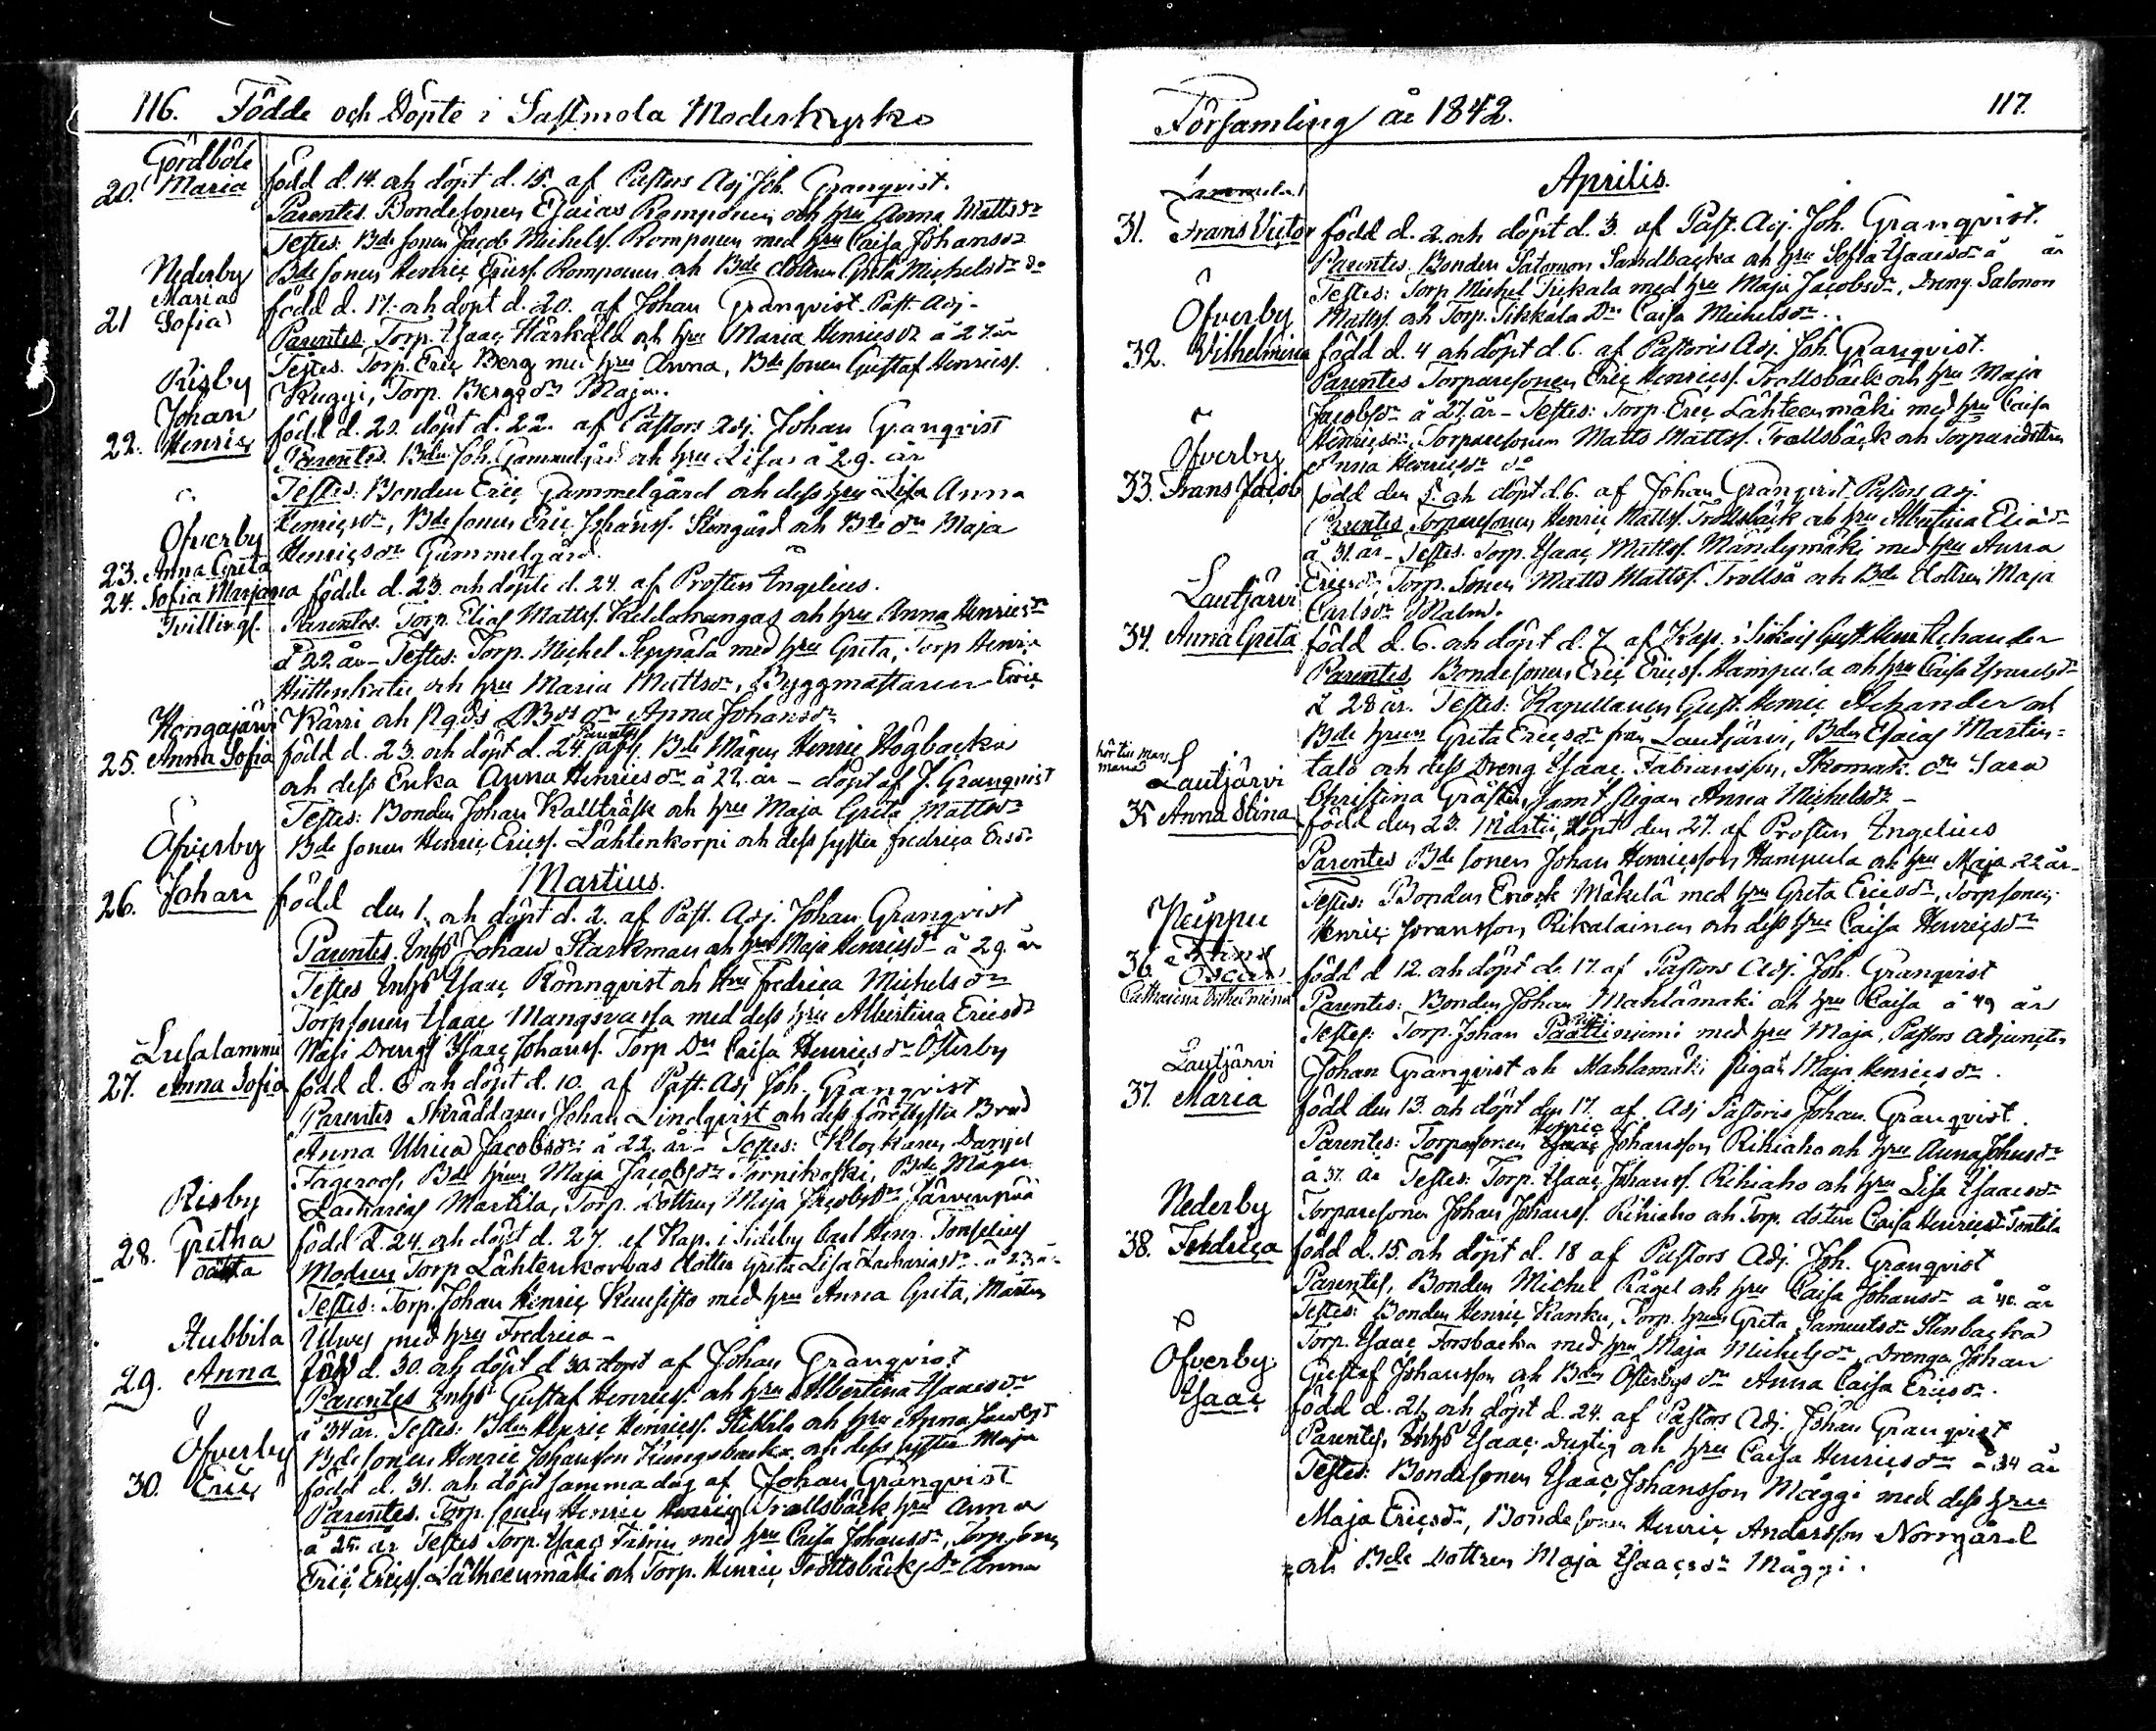 116. Födde och Döpte i Sastmola Moderkyrko
Gördböle
20. Maria född d. 14. och döpt d. 15. af Pastors Adj Joh. Granqvist.
Parentes. Bondesonen Esaias Rompoinen och hru Anna Mattsdr
Testes: Bde sonen Jacob Michelss. Romponen med hru Caisa Johansdr
Bde sonen Henric Ericss. Romponen och Bde dottren Greta Michelsdr do
Nederby
21 Maria Sofia född d. 17. och döpt d. 20. af Johan Granqvist Past. Adj.
Parentes. Torp. Isaac Härkälä och hru Maria Henricsdr à 27 år
Testes. Torp. Eric Berg med hru Anna, Bde sonen Gustaf Henricss.
Kuggi, Torp. Bergs dr Maja.
Risby
22. Johan Henric född d. 20. döpt d. 22. af Pastors Adj. Johan Granqvist
Parentes. Bden Joh. Gammelgård och hru Lisa à 29. år
Testes: Bonden Eric Gammelgård och dess hru Lisa Anna
Henricsdr, Bde sonen Eric Johanss. Stengård och Bde dr Maja
Henricsdr Gammelgård.
Öfverby
23. Anna Greta
24. Sofia Marjana födde d. 23 och döpte d. 24. af Prosten Engelius.
Tvillingf. Parentes. Torp. Elias Mattss. Kiddakangas och hru Anna Henricsdr
à 22 år - Testes: Torp. Michel Seppälä med hru Greta, Torp Henric
Hüttenkatu och hru Maria Mattsdr, Byggmästaren Eric
Kärri och Anna Johansdr
Hongajärvi
25. Anna Sofia född d. 23. och döpt d. 24. Parentes Bde Mågen Henric Högbacka
och dess Enka Anna Henricsdr à 22. år - döpt af J. Granqvist
Testes: Bonden Johan Kallträsk och hru Maja Greta Mattsdr
Bde sonen Henric Ericss. Lähtenkorpi och dess syster Fredrica Ersdr
Öfverby
Martius.
26. Johan född den 1. och döpt d. 2. af Past. Adj. Johan Granqvist
Parentes. Inhs Johan Starkman och hru Maja Henricsdr à 29. år
Testes Inhs Isaac Rönnqvist och Hru Fredrica Michelsdr
Torpsonen Isaac Mangsvasa med dess hru Albertina Ericsdr
Näsi Drengs Isaac Johanss. Torp Dr Caisa Henricsdr Österby
Lusalammi
27. Anna Sofia född d. 6 och döpt d. 10. af Past. Adj Joh. Granqvist
Parentes Skräddaren Johan Lindqvist och dess förestysta Brud
Anna Ulrica Jacobsdr à 22 år - Testes: Klockaren Daniel
Fageroos, Bde hrun Maja Jacobsdr Törnikoski, Bde Mågen
Zacharias Martila, Torp. Dottren Maja Jacobsdr Järvenpää
Risby
28. Gretha oäkta född d. 24. och döpt d. 27. af Kap. i Sideby Carl Henr. Tonselius
Modren Torp Lähtenkorvas dotter Greta Lisa Zachariasdr à 23 år
Testes: Torp. Johan Henric Kuusisto med hru Anna Greta, Mårten
Ulwes med hru Fredrica -
Hubbila
29. Anna född d. 30. och döpt d 30. döpt af Johan Granqvist
Parentes Inhs Gustaf Henricss. och hru Albertina Isaacsdr
à 34 år. Testes: Bden Henric Henricss. och hru Anna Jacobsd
Bde sonen Henric Johansson Kungsbacka och dess syster Maja
Öfverby
30. Eric född d. 31. och döpt samma dag af Johan Granqvist
Parentes. Torp. sonen Henric Henrics Trollsbäck hru Anna
à 25 år Testes Torp. Isaac med hru Caisa Johansdr, Torp. sonen
Eric Ericss. Lähteenmäki och Torp. Henric Trollsbäck Dr Anna
Församling år 1842. 117.
Aprilis.
Lammela
31. Frans Victor född d. 2. och döpt d. 3. af Past. Adj. Joh. Granqvist.
Parentes. Bonden Salomon Sandbacka och hru Sofia Isaacsdr à år
Testes: Torp. Michel Tiekala med hru Maja Jacobsdr, Dreng. Salomon
Mattss. och Torp. Tikkala Dr Caisa Michelsdr.
Öfverby
32. Vilhelmina född d. 4 och döpt d. 6. af Pastoris Adj. Joh. Granqvist.
Parentes Torparesonen Eric Henricss. Trollsbäck och hru Maja
Jacobsdr à 27 år - Testes: Torp. Eric Lähteenmäki med hru Caisa
Henricsdr, Torparesonen Matts Mattss. Trollsbäck och Torparedottren
Anna Henricsdr do
Öfverby
33. Frans Jacob född den 5. och döpt d. 6. af Johan Granqvist Pastors adj.
Parentes Torparesonen Henric Mattss. Trollsbäck och hru Albertina Eliædr
à 31 år - Testes. Torp. Isaac Mattss. Mändymäki med hru Anna
Ericsdr, Torp. Sonen Matts Mattss. Trollså och Bde dottren Maja
Carlsdr Malm.
Lautjärvi
34. Anna Greta född d. 6. och döpt d. 7. af Kap. i Siikais Gust. Henr. Achander
Parentes Bondesonen Eric Ericss. Hampula och hru Caisa Isracelsdr
à 28 år. Testes: Kapellanen Gust. Henric Achander och
Bde hrun Greta Ericsdr från Lautjärvi, Bden Esaias Martin-
talo och dess Dreng Isaac Fabiansson, Skomak. dr Sara
Christina Grästen, samt Pigan Anna Michelsdr -
hör till Mars månad
Lautjärvi
35 Anna Stina född den 23. Martii, döpt den 27. af Prosten Engelius
Parentes Bde sonen Johan Henricsson Hampula och hru Maja 22 år-
Testes: Bonden Enock Mäkelä med hru Greta Ericsdr, Torpsonen
Henric Joransson Rikalainen och dess hru Caisa Henricsdr
Peippu
36. Oscar född d 12. och döpt d. 17. af Pastors Adj. Joh. Granqvist
Catharina Vilhelmina Parentes: Bonden Johan Mahlamäki och hru Caisa à 49 år
Testes: Torp. Johan Paattiniemi med hru Maja, Pastors adjuncten
Johan Granqvist och Mahlamäki Pigan Maja Henricsdr.
Lautjärvi
37. Maria född den 13. och döpt den 17. af Adj Pastoris Johan Granqvist.
Parentes: Torparesonen Henric Isaac Johansson Rihiaho och hru Anna Johnsdr
à 37. år Testes: Torp. Isaac Johanss. Rihiaho och hru Lisa Isaacsdr
Torparesonen Johan Johanss. Rihiaho och Torp. dottren Caisa Henricsdr Tentila
Nederby
38. Fredrica född d. 15. och döpt d. 18 af Pastors Adj. Joh. Granqvist
Parentes, Bonden Michel Rågel och hru Caisa Johansdr à 40. år
Testes: Bonden Henric Kanku, Torp. hrun Greta Samuelsdr Stenbacka
Torp. Isaac Forsbacka med hru Maja Michelsdr, Drenga Johan
Gustaf Johansson och Bden Österbys dr Anna Caisa Ericsdr.
Öfverby
Isaac född d. 21. och döpt d. 24. af Pastors Adj. Johan Granqvist
Parentes, Inhs Isaac Dustig och hru Caisa Henricsdr à 34 år
Testes: Bondesonen Isaac Johansson Mäggi med dess hru
Maja Ericsdr, Bonde sonen Henric Andersson Norrgård
och Bde Dottren Maja Isaacsdr Mäggi.